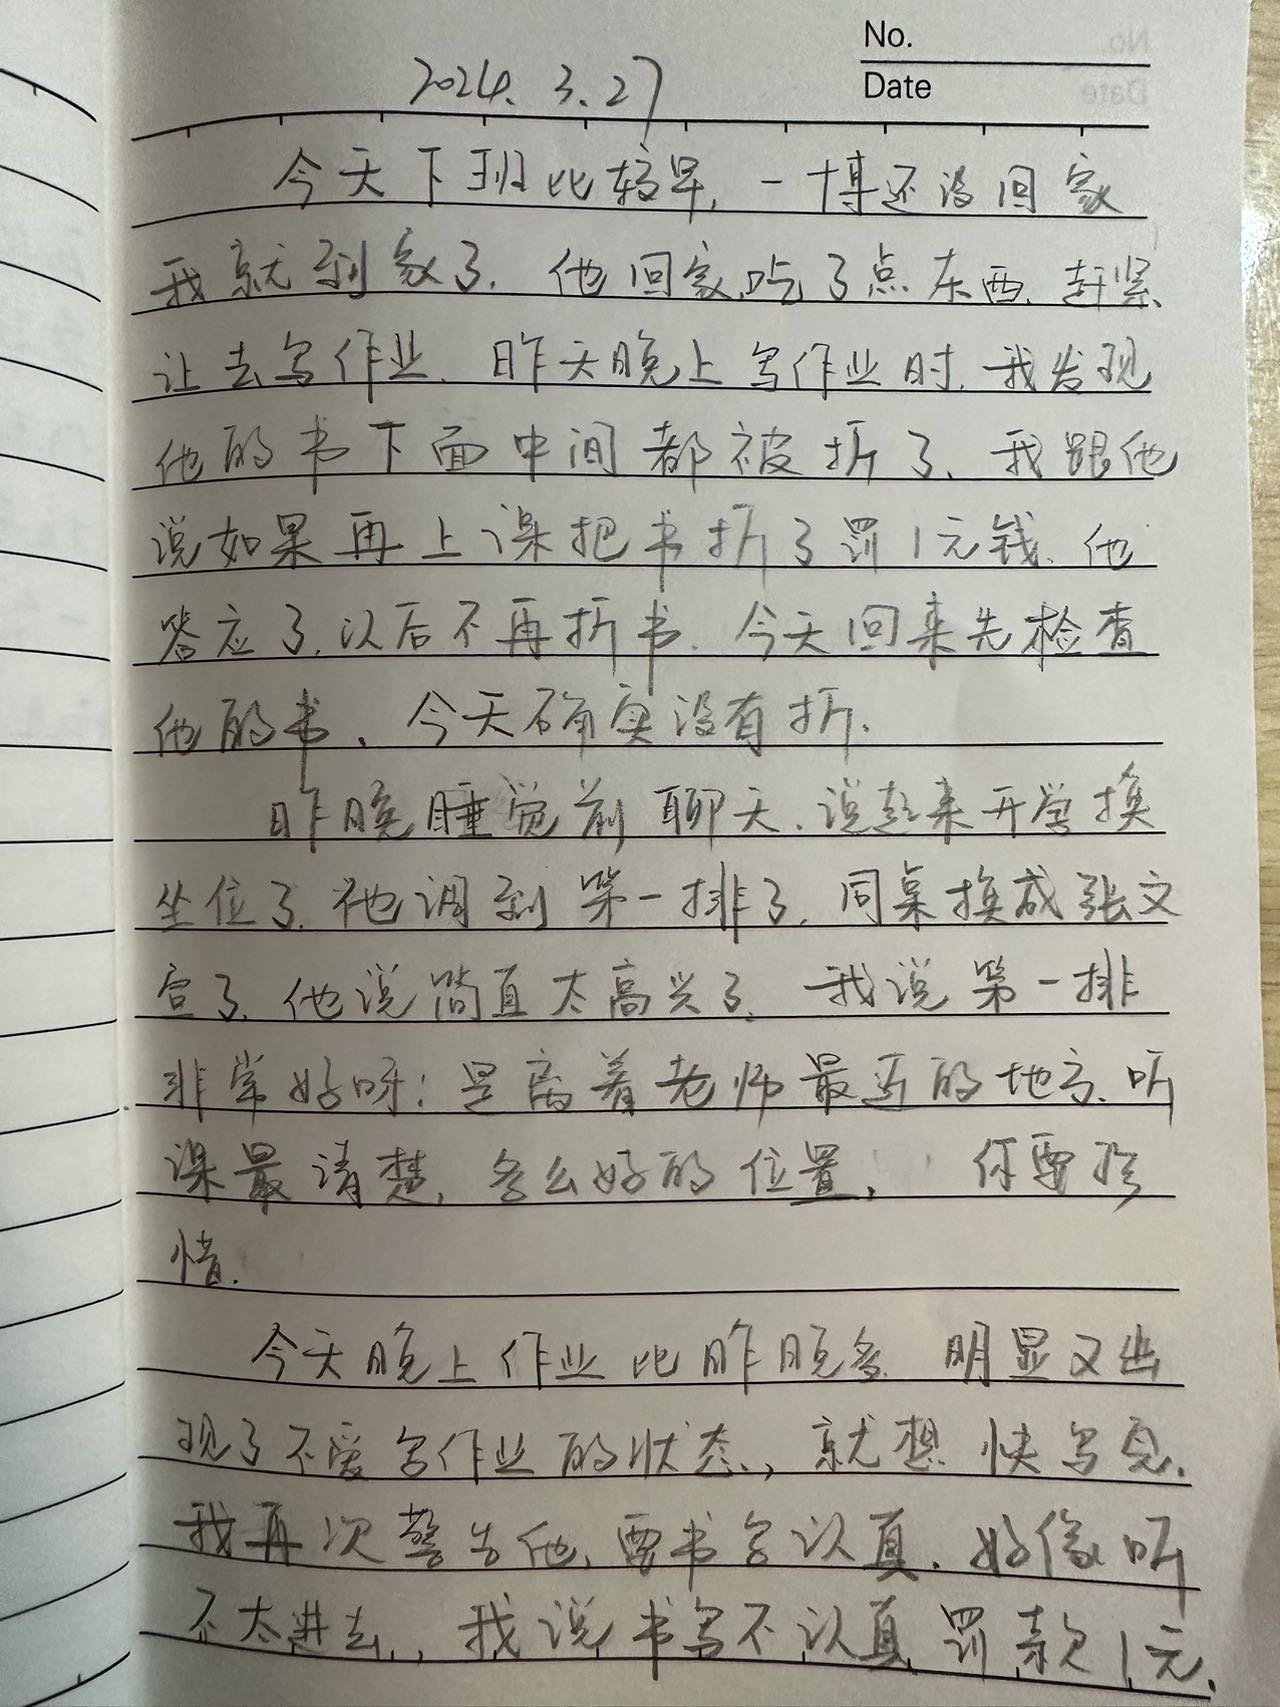 No.
Date
2024. 3. 27
今天下班比较早, 一博还没回家
我就到家了. 他回家吃了点东西, 赶紧
让去写作业. 昨天晚上写作业时, 我发现
他的书下面中间都被折了、我跟他
说如果再上课把书折了罚1元钱、他
答应了, 以后不再折书. 今天回来先检查
他的书、今天确实没有折.
昨晚睡觉前聊天、说起来开学换
坐位了, 他调到第一排了, 同桌换成张文
了, 他说简直太高兴了、我说第一排
非常好呀; 是离着老师最近的地方、听
课最清楚, 多么好的位置, 你要珍
惜.
今天晚上作业比昨晚多 明显又出
现了不爱写作业的状态, 就想快写完.
我再次警告他, 要书写认真. 好像听
不太进去, 我说书写不认真罚款1元.